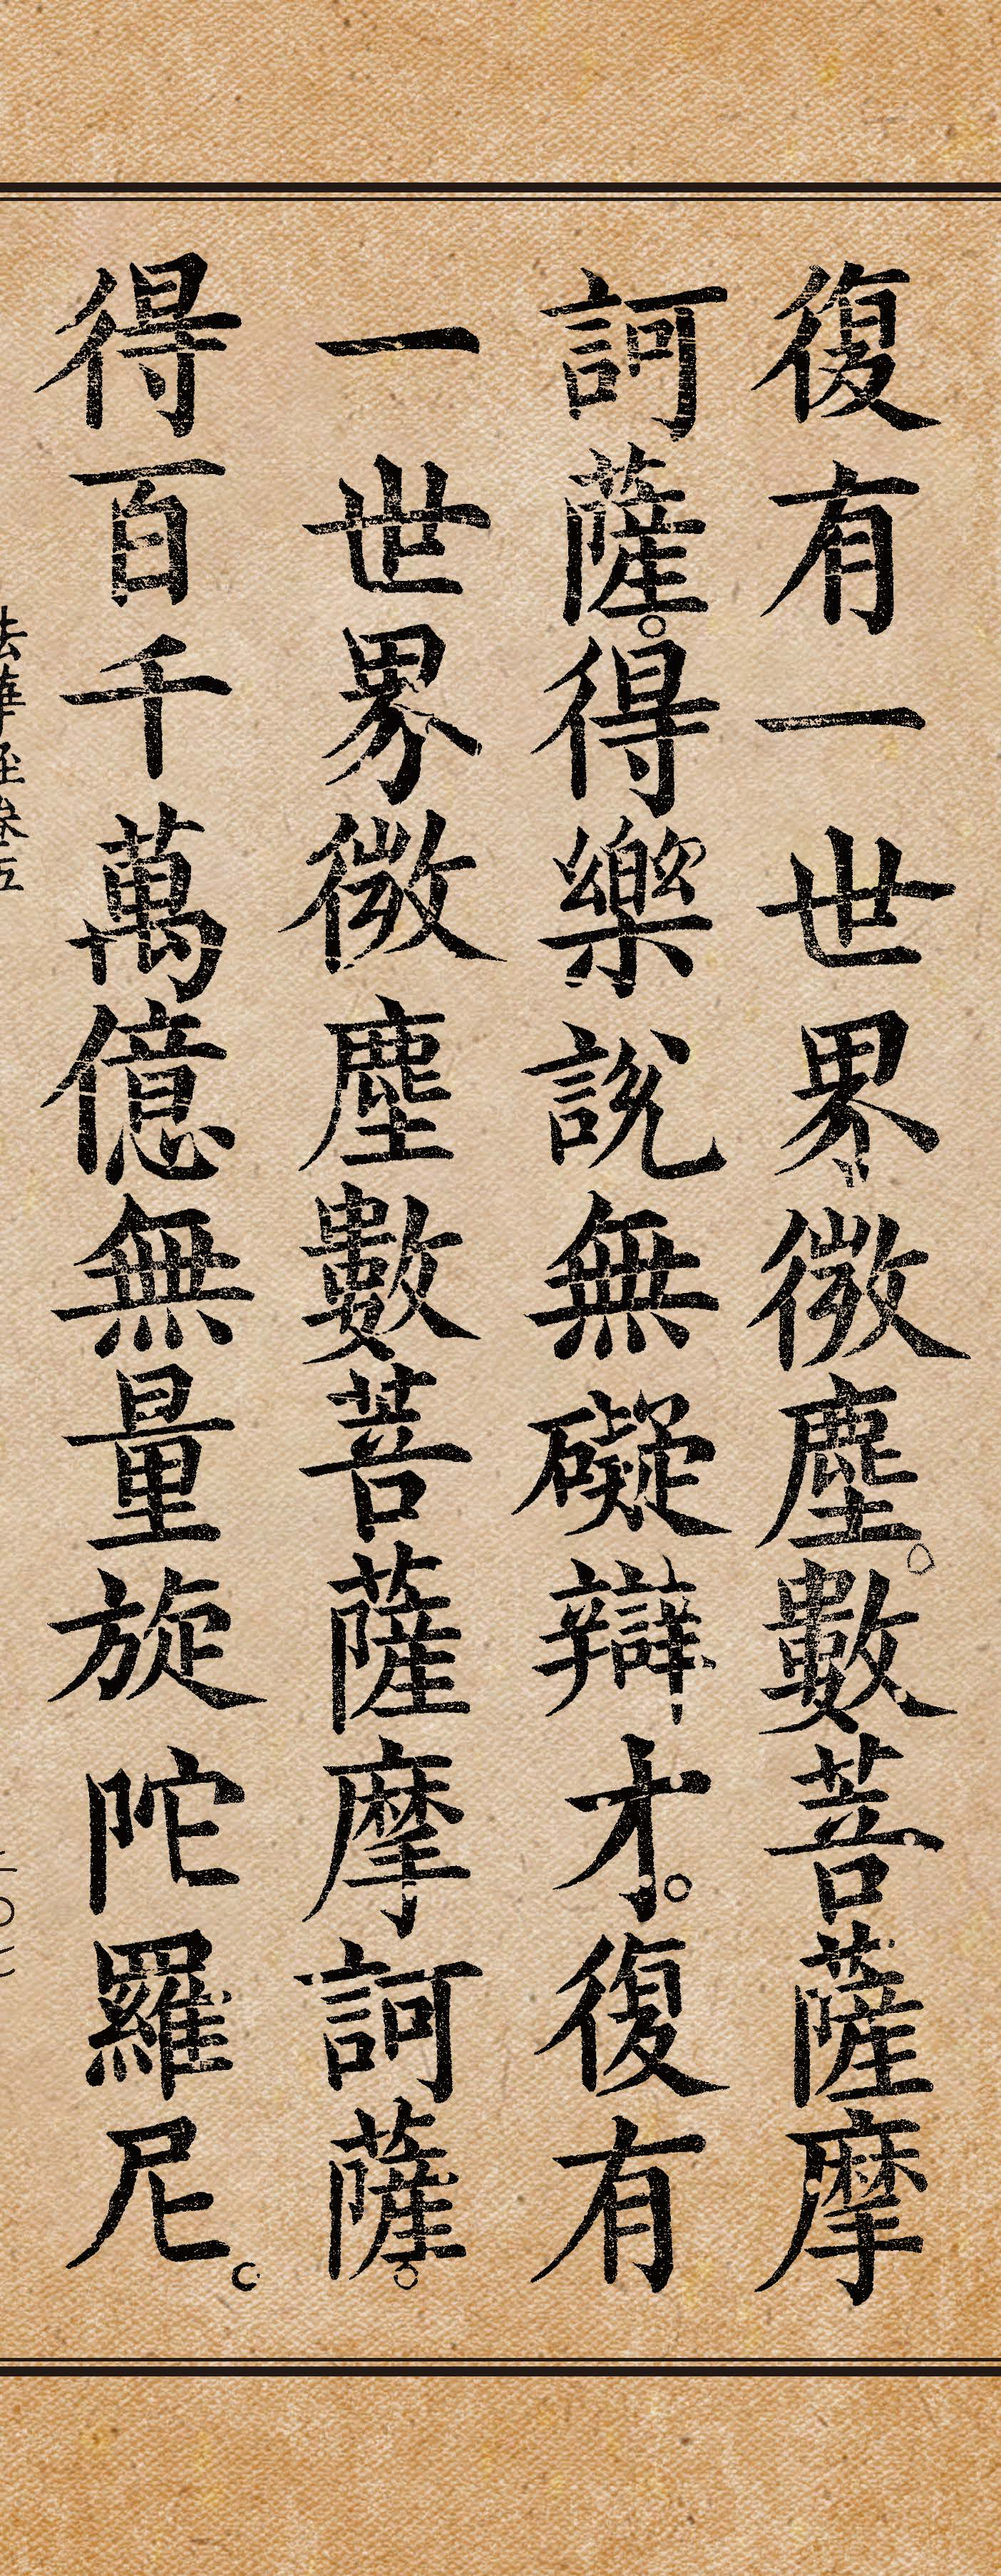 復有一世界微塵。數菩薩摩
訶薩。得樂說無礙辯才。復有
一世界微塵數菩薩摩訶薩。
得百千萬億無量旋陀羅尼。
法華經卷五